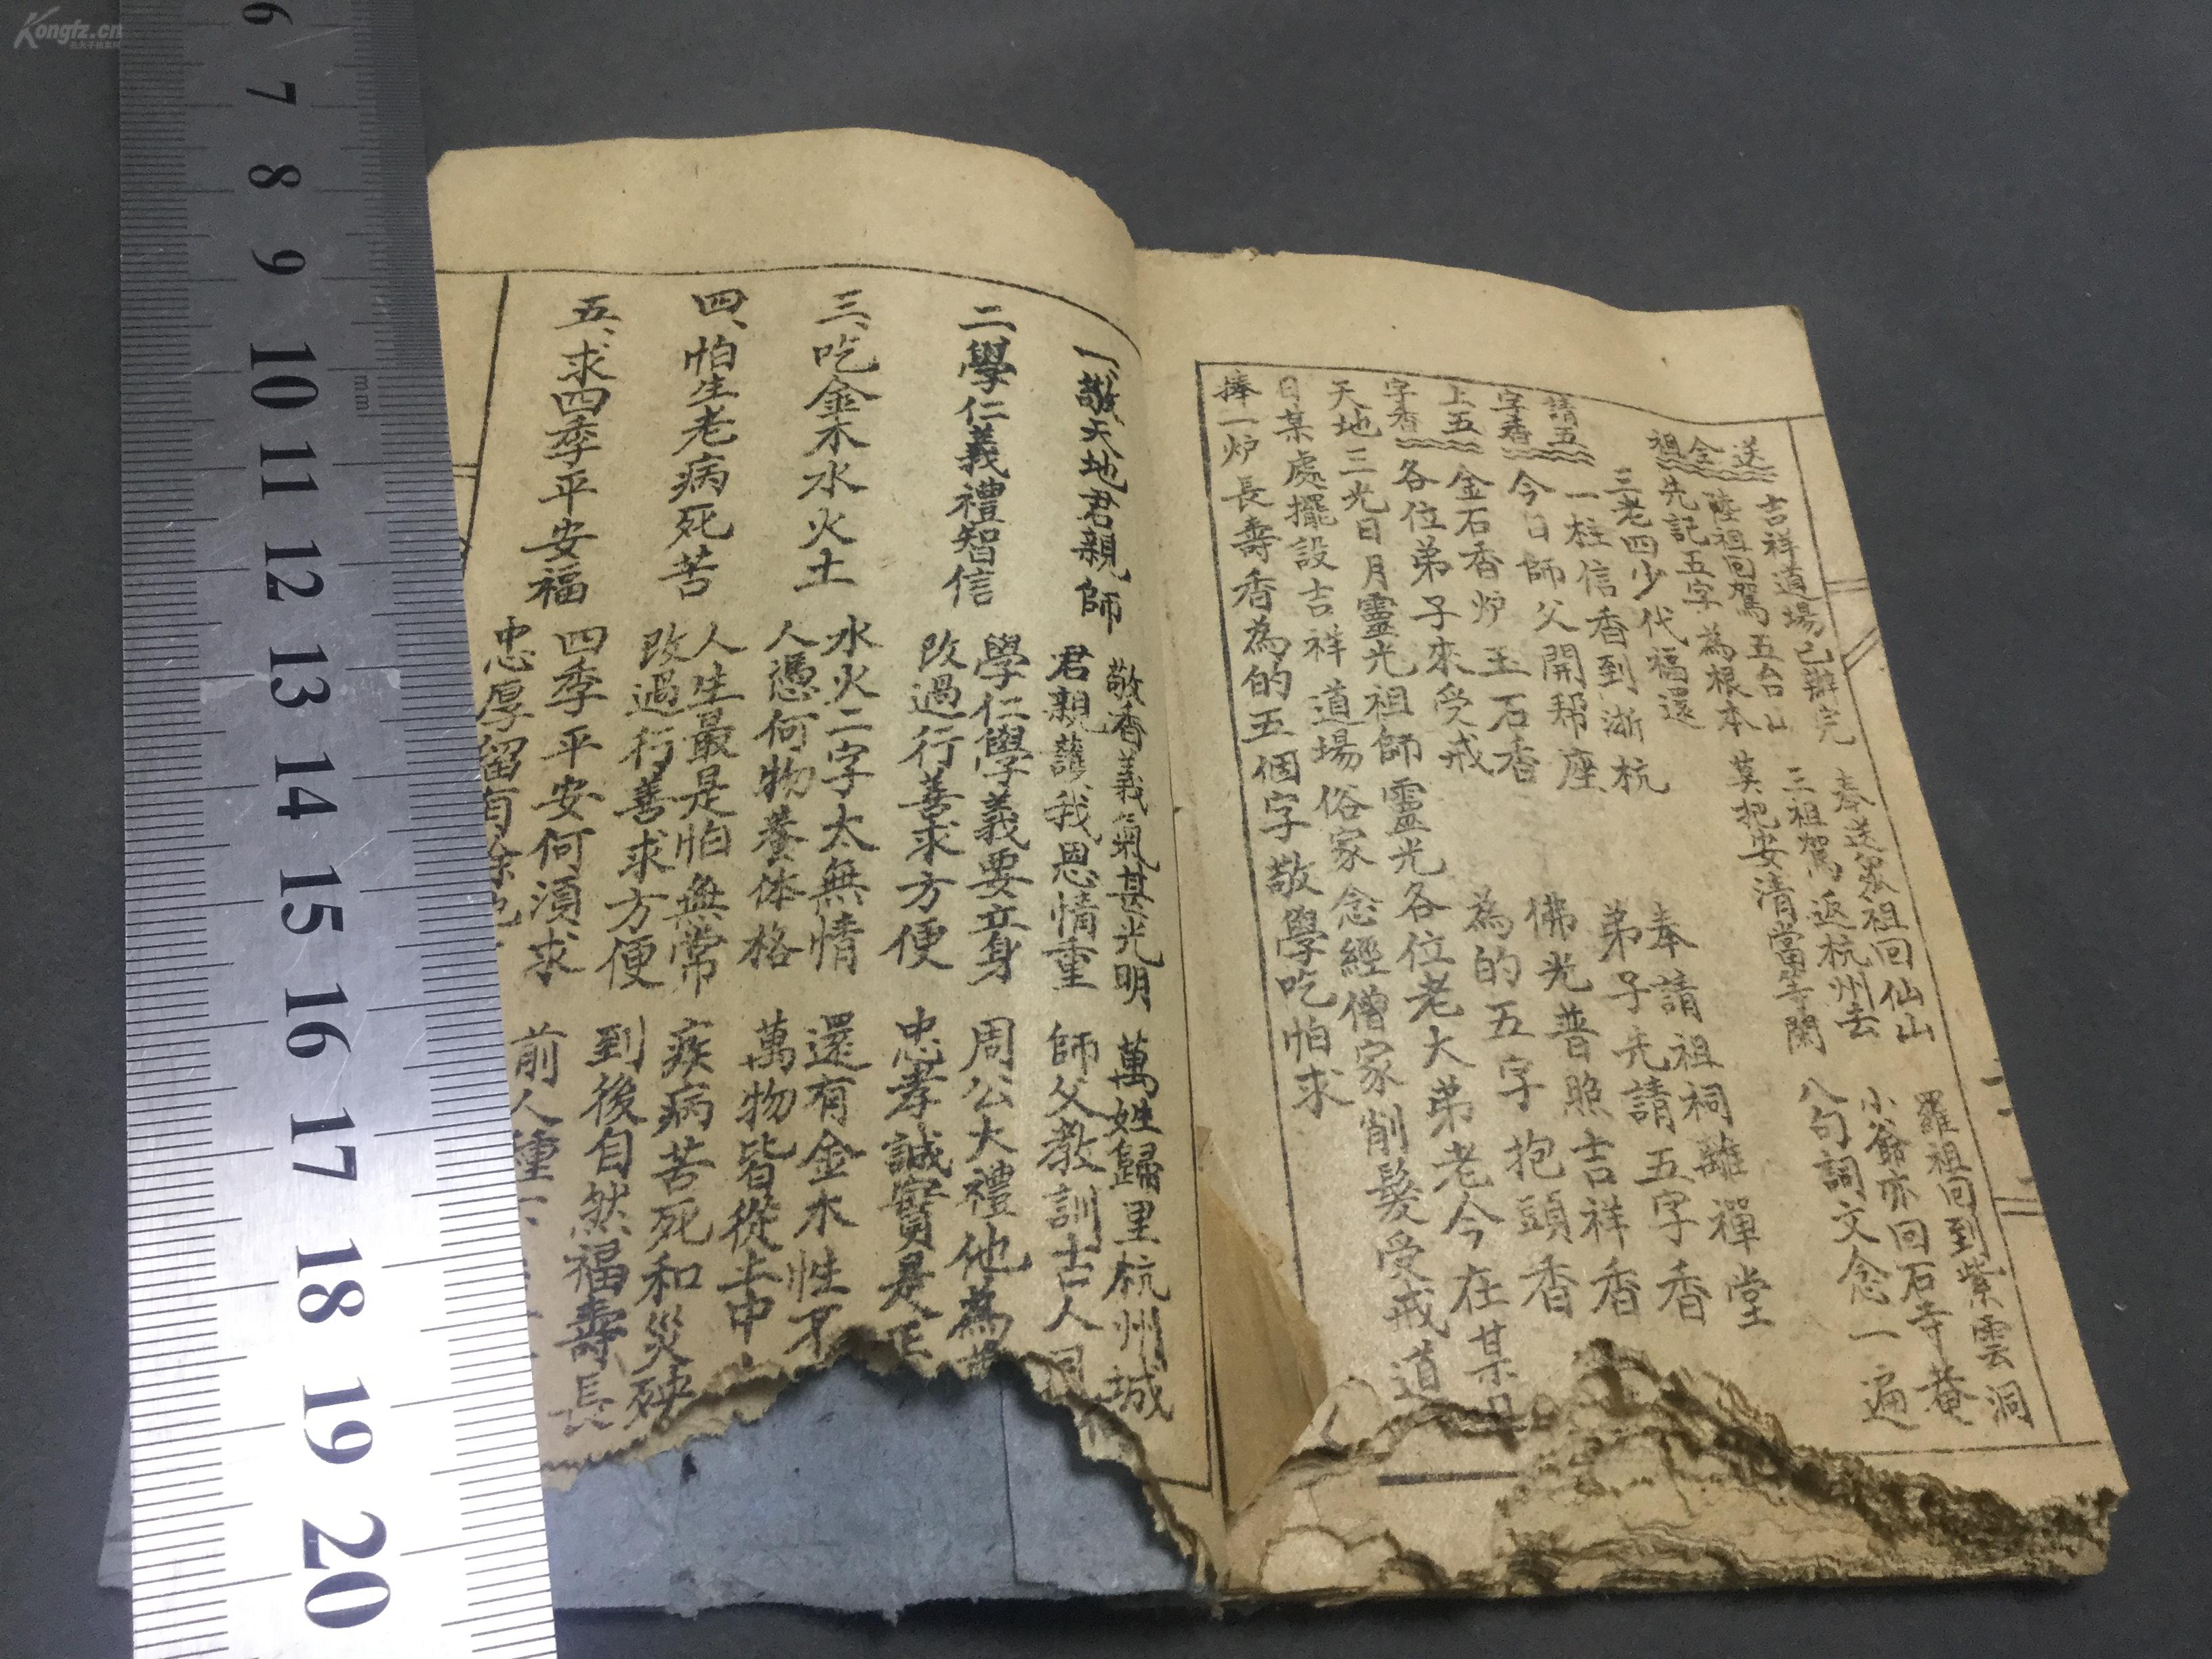 吉祥道場已辦完 奉送眾祖回仙山 羅祖回到紫雲洞
送全祖 陸祖回駕五台山 三祖駕返杭州去 小爺亦回石寺菴
先記五字為根本 莫把安清當等閑 八句詞文念一遍
三老四少代福還
一柱信香到浙杭 奉請祖祠離禪堂
請五字香 今日師父開幫座 弟子先請五字香
金石香炉玉石香 佛光普照吉祥香
上五字香 各位弟子來受戒 為的五字抱頭香
天地三光日月靈光祖師靈光各位老大弟老今在某
日某處擺設吉祥道場俗家念經僧家削髮受戒道
捧一炉長壽香為的五個字敬學吃怕求
一、敬天地君親師 敬香義氣甚光明 萬姓歸里杭州城
君親護我恩情重 師父教訓古人
二學仁義禮智信 學仁學義要立身 周公大禮他為
改過行善求方便 忠孝誠實是正
三、吃金木水火土 水火二字太無情 還有金木性不
人憑何物養体格 萬物皆從土中
四、怕生老病死苦 人生最是怕無常 疾病苦死和災殃
改過行善求方便 到後自然福壽長
五、求四季平安福 四季平安何須求 前人種
忠厚留有餘
6
7
8
9
10
11
12
13
14
15
16
17
18
19
20
mm
Kongfz.cn
孔夫子旧书网